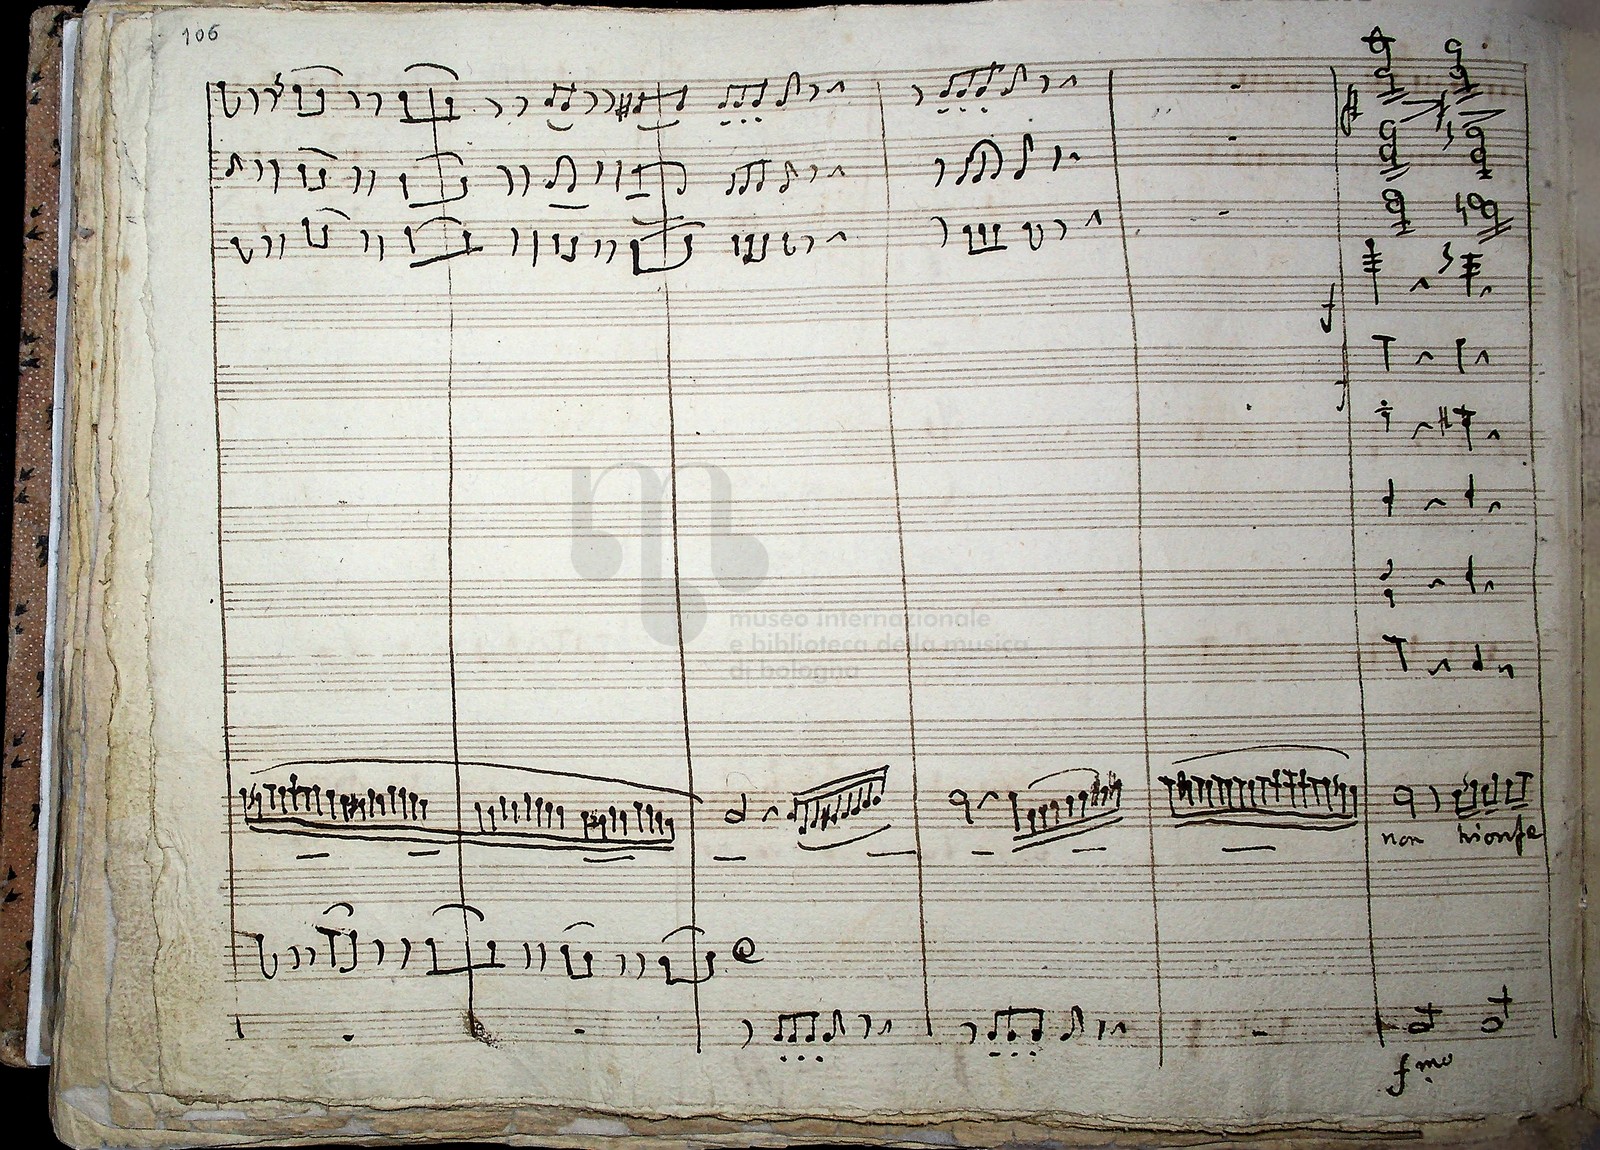 106
f
f
museo internazionale
e biblioteca della musica
di bologna
non trionfe
fmo